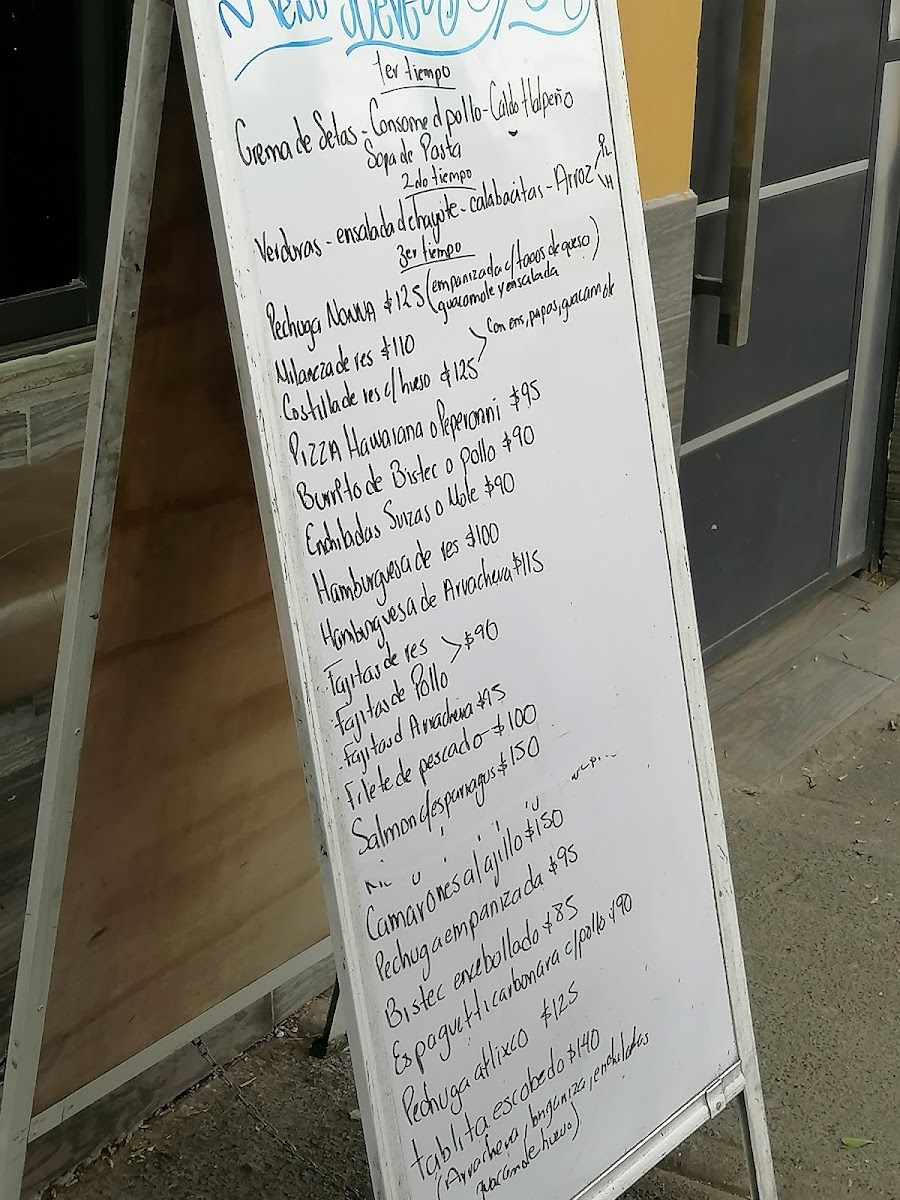 Menú Jueves
1er tiempo
Crema de Setas - Consome d pollo - Caldo tlalpeño
Sopa de Pasta
2do tiempo
Verduras - ensalada d chayote - calabacitas - Arroz
3er tiempo
Pechuga NONNA $125 (empanizada c/tacos de queso)
guacamole y ensalada
Milaneza de res $110
Con ens, papas, guacamole
Costilla de res c/hueso $125
PIZZA Hawaiana o Peperonni $95
Burrito de Bistec o pollo $90
Enchiladas Suizas o Mole $90
Hamburguesa de res $100
Hamburguesa de Arrachera $115
Fajitas de res
$90
Fajitas de Pollo
Fajitas d Arrachera $95
Filete de pescado - $100
Salmon c/esparragus $150
Camarones al ajillo $150
Pechuga empanizada $95
Bistec encebollado $85
Espaguetti carbonara c/pollo $90
Pechuga atlixco $125
tablita escobedo $140
(Arrachera, longaniza, enchiladas
guacamole huevo)